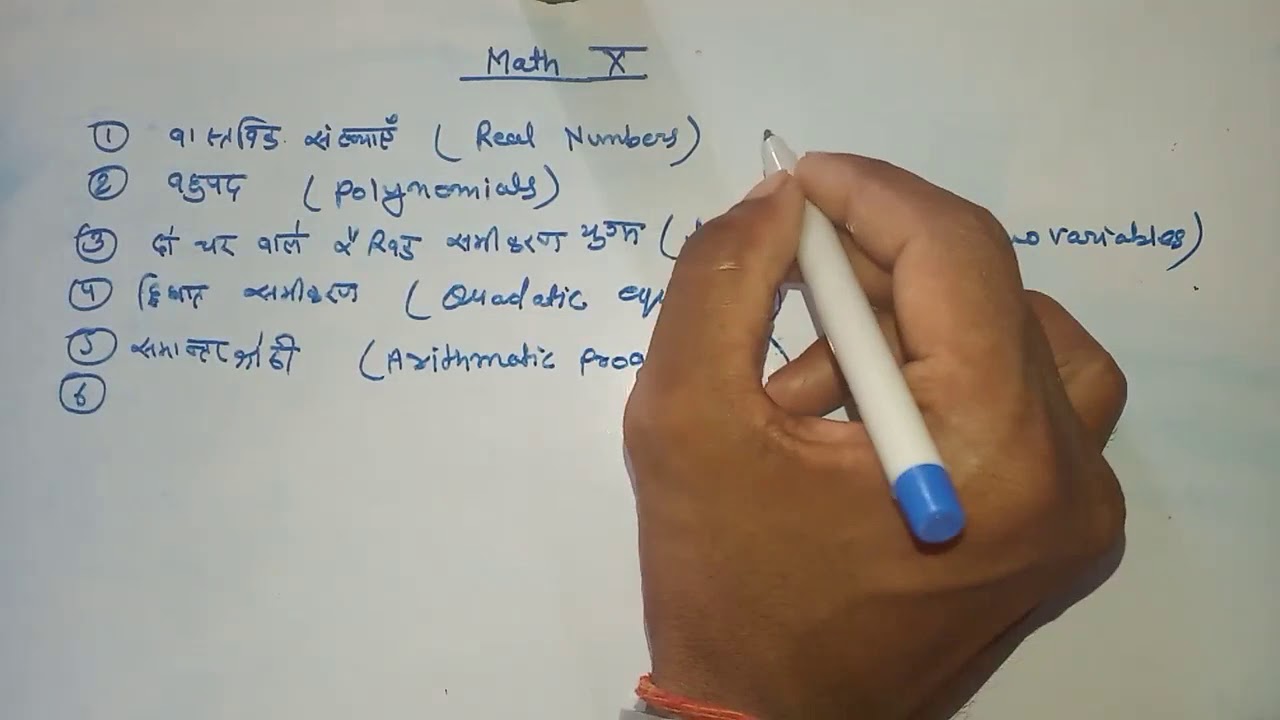 Math X
① वास्तविक संख्याएँ (Real Numbers)
② बहुपद (Polynomials)
③ दो चर वाले रैखिक समीकरण युग्म ( variables)
④ द्विघात समीकरण (Quadatic
⑤ समान्तर श्रेढी (Arithmatic
⑥